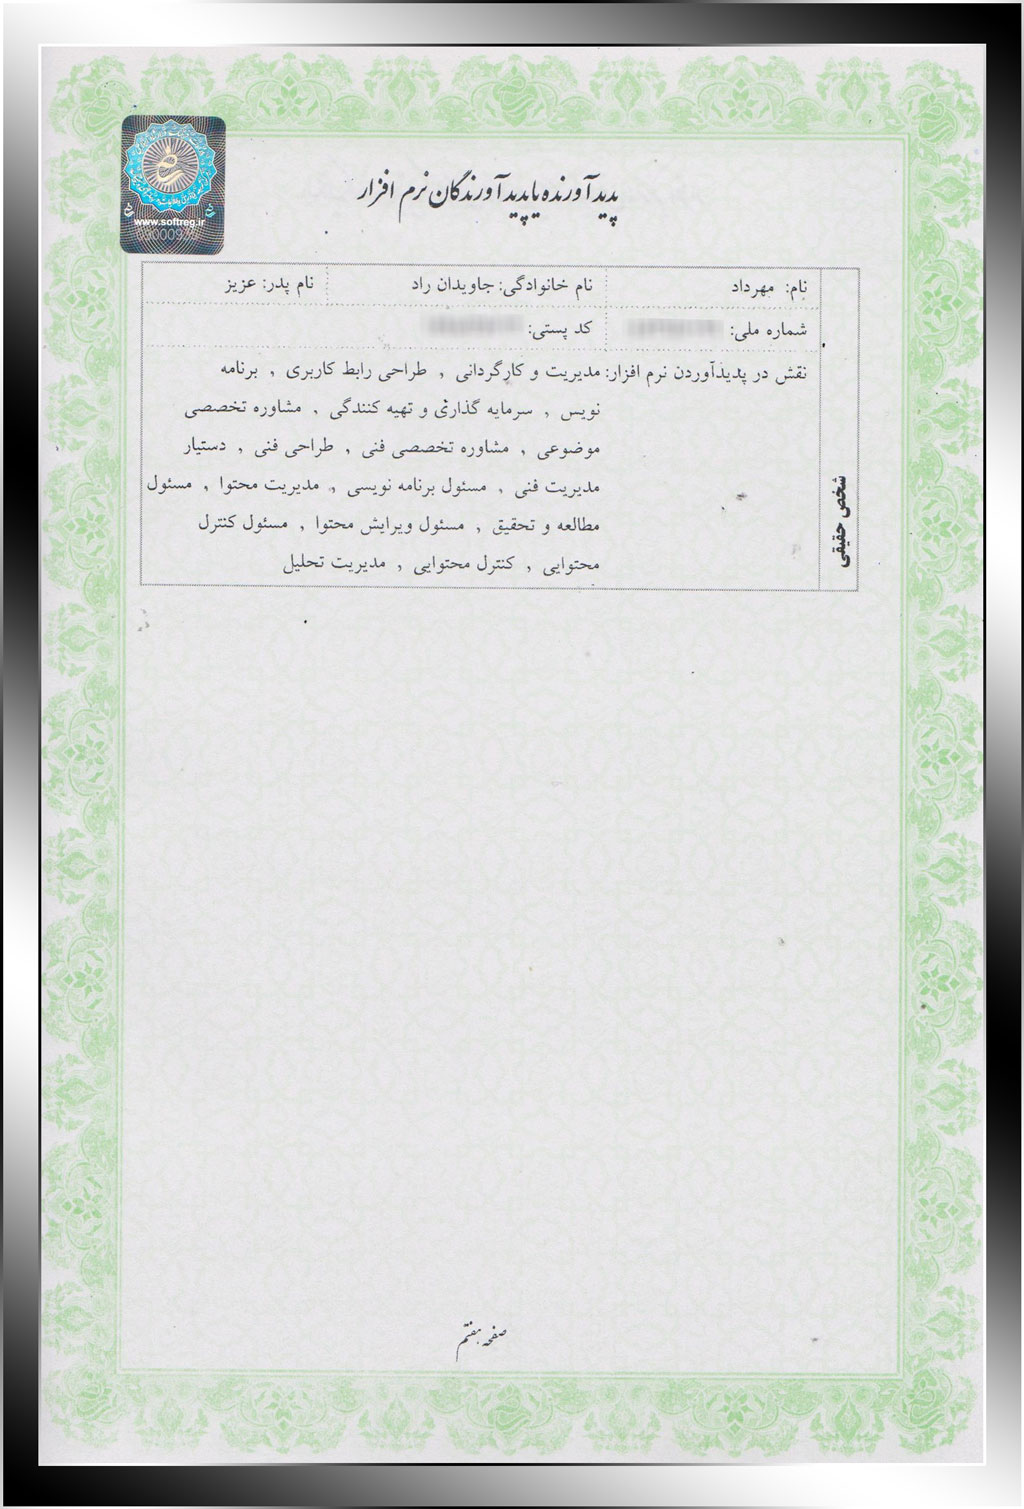 پدیدآورنده یا پدیدآورندگان نرم افزار
www.softreg.ir
نام: مهرداد
نام خانوادگی: جاویدان راد
نام پدر: عزیز
شماره ملی:
کد پستی:
نقش در پدیدآوردن نرم افزار: مدیریت و کارگردانی , طراحی رابط کاربری , برنامه
نویس , سرمایه گذاری و تهیه کنندگی , مشاوره تخصصی
موضوعی , مشاوره تخصصی فنی , طراحی فنی , دستیار
مدیریت فنی , مسئول برنامه نویسی , مدیریت محتوا , مسئول
مطالعه و تحقیق , مسئول ویرایش محتوا , مسئول کنترل
محتوایی , کنترل محتوایی , مدیریت تحلیل
شخص حقیقی
صفحه هفتم